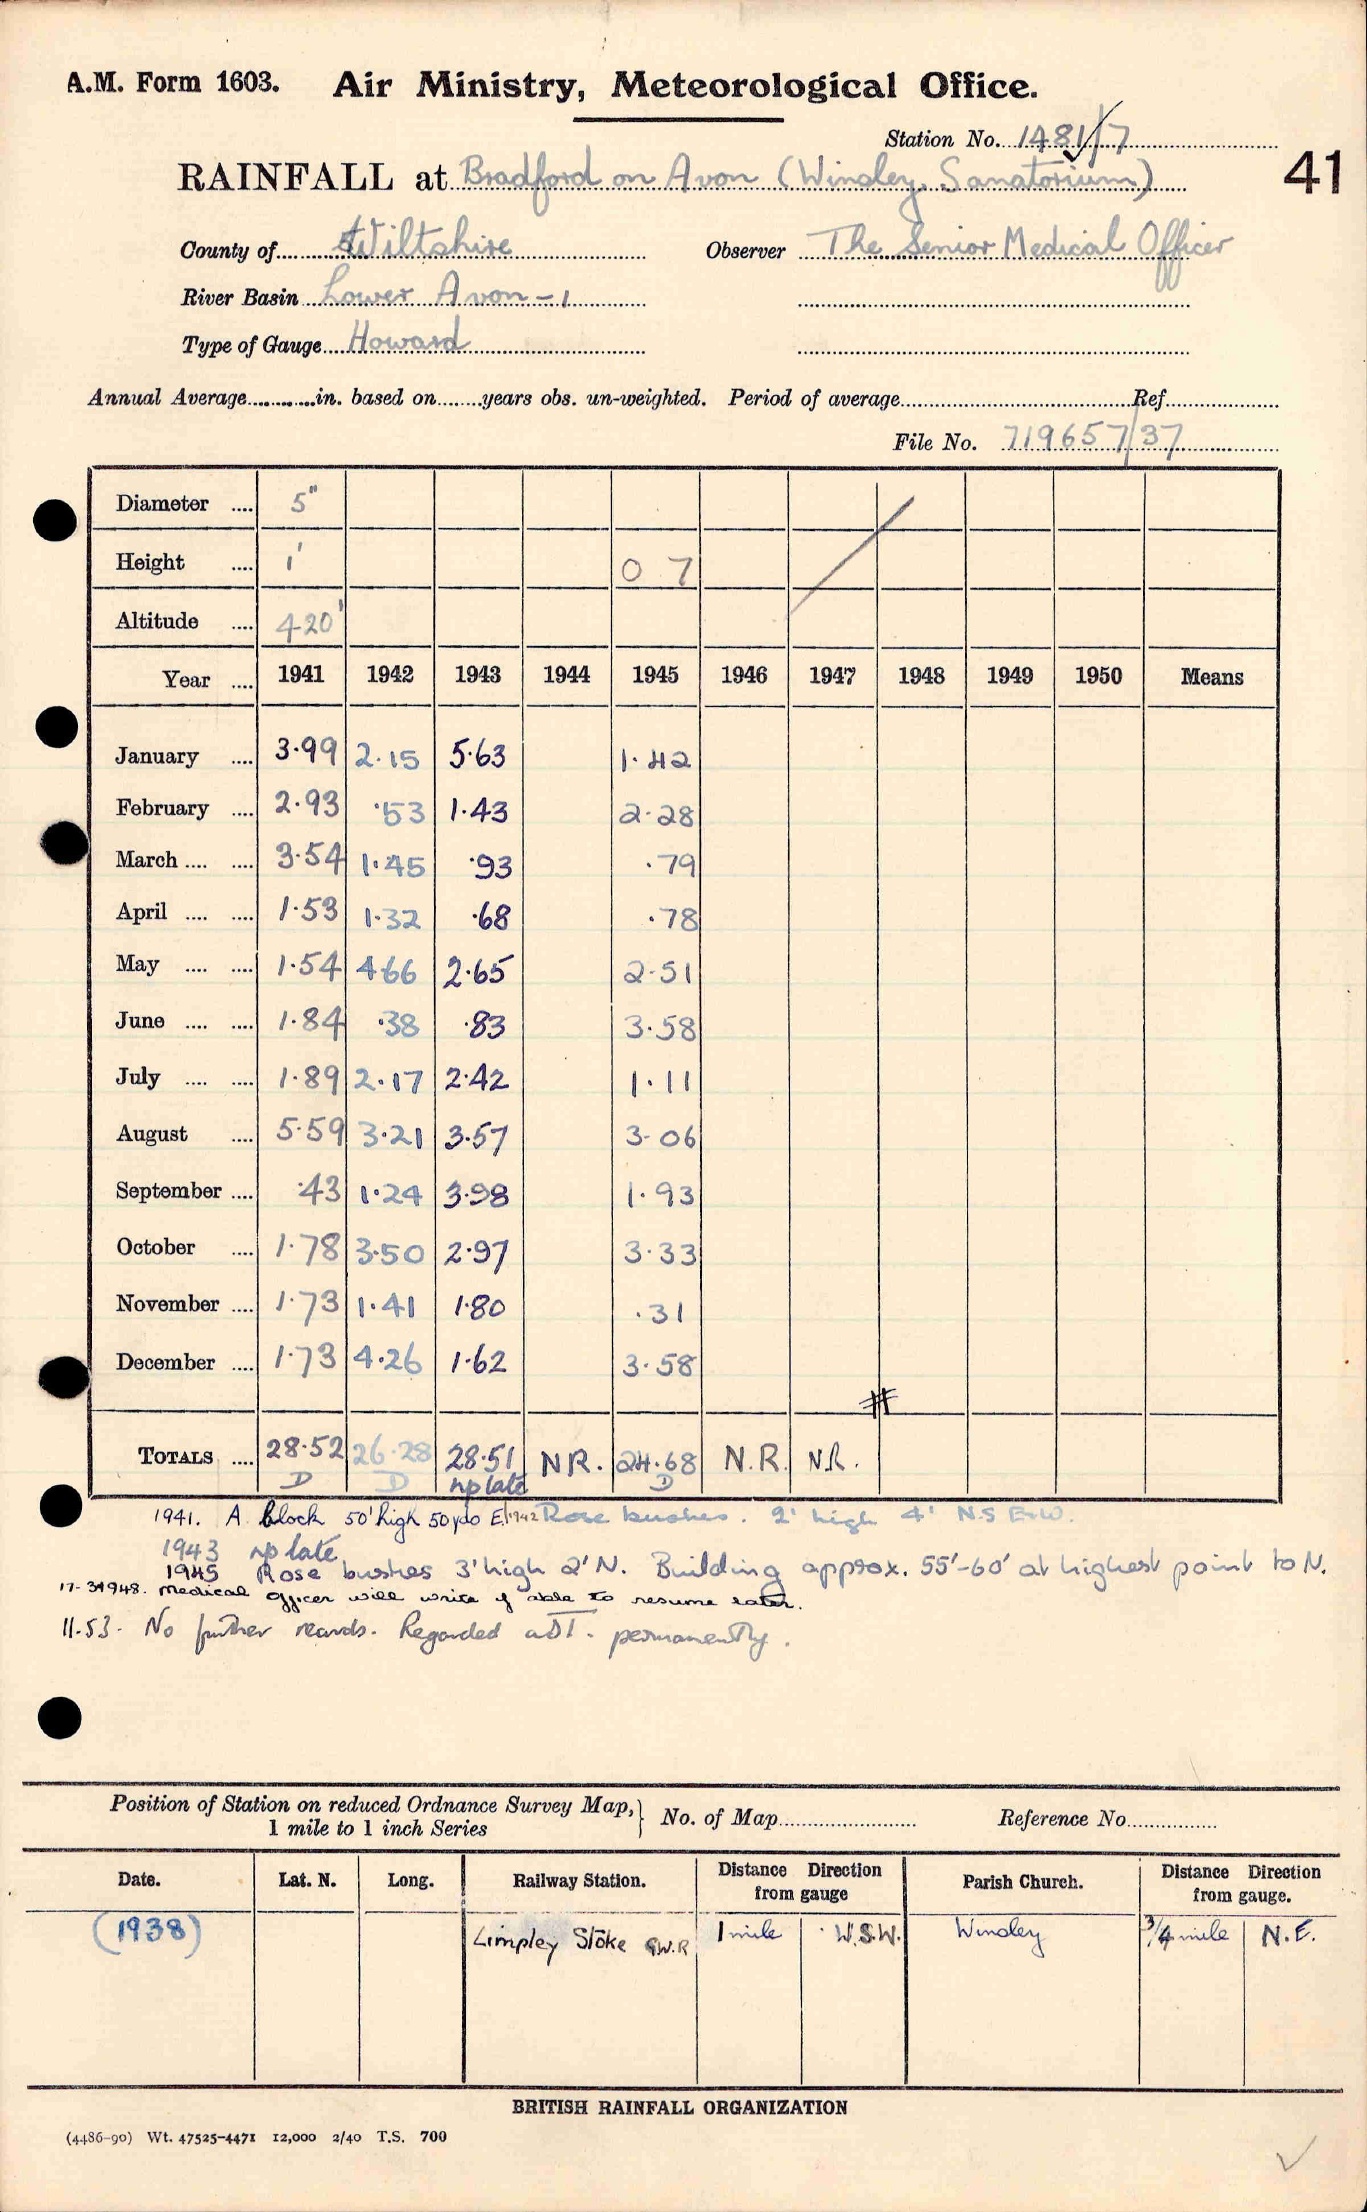 A.M. Form 1603. Air Ministry, Meteorological Office.
Station No. 1481/7
RAINFALL at Bradford on Avon (Winsley Sanatorium)
41
County of Wiltshire Observer The Senior Medical Officer
River Basin Lower Avon - 1
Type of Gauge Howard
Annual Average in. based on years obs. un-weighted. Period of average Ref
File No. 719657/37
Diameter 5"
Height 1' 0 7
Altitude 420'
Year 1941 1942 1943 1944 1945 1946 1947 1948 1949 1950 Means
January 3.99 2.15 5.63 1.42
February 2.93 .53 1.43 2.28
March 3.54 1.45 .93 .79
April 1.53 1.32 .68 .78
May 1.54 4.66 2.65 2.51
June 1.84 .38 .83 3.58
July 1.89 2.17 2.42 1.11
August 5.59 3.21 3.57 3.06
September .43 1.24 3.98 1.93
October 1.78 3.50 2.97 3.33
November 1.73 1.41 1.80 .31
December 1.73 4.26 1.62 3.58
TOTALS 28.52 26.28 28.51 N.R. 24.68 N.R. N.R.
D D np late D
1941. A block 50' high 50 yds E. 1942 Rose bushes. 2' high 4' N.S E.W.
1943 np late
1945 Rose bushes 3' high 2' N. Building approx. 55'-60' at highest point to N.
17-3-1948. Medical Officer will write if able to resume later.
11.53. No further records. Regarded as T. permanently.
Position of Station on reduced Ordnance Survey Map, } No. of Map Reference No.
1 mile to 1 inch Series
Date. Lat. N. Long. Railway Station. Distance Direction from gauge Parish Church. Distance Direction from gauge.
(1938) Limpley Stoke G.W.R 1 mile W.S.W. Winsley 3/4 mile N.E.
BRITISH RAINFALL ORGANIZATION
(4486-90) Wt. 47525-4471 12,000 2/40 T.S. 700